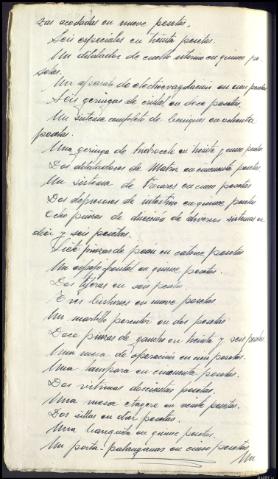 zas acodadas en nueve pesetas.
Seis especiales en treinta pesetas.
Un dilatador de cuello uterino en quince pe
setas.
Un aparato de electrocoagulacion en cien pesetas
Seis geringas de cristal en doce pesetas.
Un sistema completo de Beniques en ochenta
pesetas.
Una geringa de en treinta y cinco pesetas
Dos dilatadores de en cincuenta pesetas
Un sistema de en cinco pesetas
Dos depresores de en quince pesetas
Ocho pinzas de disección de diversos sistemas en
diez y seis pesetas.
Siete pinzas de pean en catorce pesetas
Un espejo frontal en quince pesetas.
Dos tijeras en seis pesetas
Tres bisturis en nueve pesetas
Un martillo percutor en dos pesetas.
Doce pinzas de en treinta y seis pesetas
Una mesa de operación en cien pesetas.
Una lampara en cincuenta pesetas.
Dos vitrinas doscientas pesetas
Una mesa en veinte pesetas.
Dos sillas en diez pesetas.
Una banqueta en quince pesetas.
Un porta-palanganas en cinco pesetas
Un